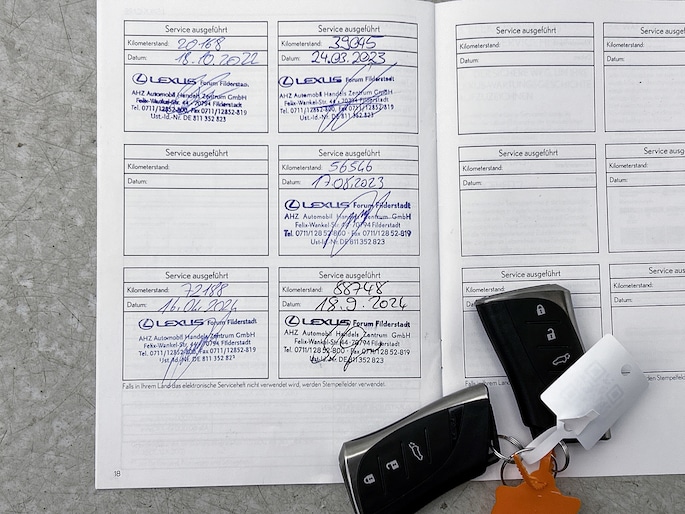 Service ausgeführt
Kilometerstand: 20168
Datum: 18.10.2022
LEXUS Forum Filderstadt
AHZ Automobil Handels Zentrum GmbH
Felix-Wankel-Str. 44 · 70794 Filderstadt
Tel. 0711/12852-800, Fax 0711/12852-819
Ust.-Id.-Nr. DE 811 352 823
Service ausgeführt
Kilometerstand: 39045
Datum: 24.03.2023
LEXUS Forum Filderstadt
AHZ Automobil Handels Zentrum GmbH
Felix-Wankel-Str. 44 · 70794 Filderstadt
Tel. 0711/12852-800, Fax 0711/12852-819
Ust.-Id.-Nr. DE 811 352 823
Service ausgeführt
Kilometerstand:
Datum:
Service ausgeführt
Kilometerstand: 56546
Datum: 17.08.2023
LEXUS Forum Filderstadt
AHZ Automobil Handels Zentrum GmbH
Felix-Wankel-Str. 44 · 70794 Filderstadt
Tel. 0711/128 52-800 · Fax 0711/128 52-819
Ust-Id-Nr. DE 811 352 823
Service ausgeführt
Kilometerstand: 72188
Datum: 2024
LEXUS Forum Filderstadt
AHZ Automobil Handels Zentrum GmbH
Felix-Wankel-Str. 44 · 70794 Filderstadt
Tel. 0711/12852-800, Fax 0711/12852-819
Ust.-Id.-Nr. DE 811 352 823
Service ausgeführt
Kilometerstand: 88748
Datum: 18.9.2024
LEXUS Forum Filderstadt
AHZ Automobil Handels Zentrum GmbH
Felix-Wankel-Str. 44 · 70794 Filderstadt
Tel. 0711/128 52-800 · Fax 0711/128 52-819
Ust-Id-Nr. DE 811 352 823
Falls in Ihrem Land das elektronische Serviceheft nicht verwendet wird, werden Stempelfelder verwendet.
18
Service ausgeführt
Kilometerstand:
Datum:
Service ausgef
Kilometerstand:
Datum:
Service ausgeführt
Kilometerstand:
Datum:
Service ausge
Kilometerstand:
Datum:
Service ausgeführt
Service ausg